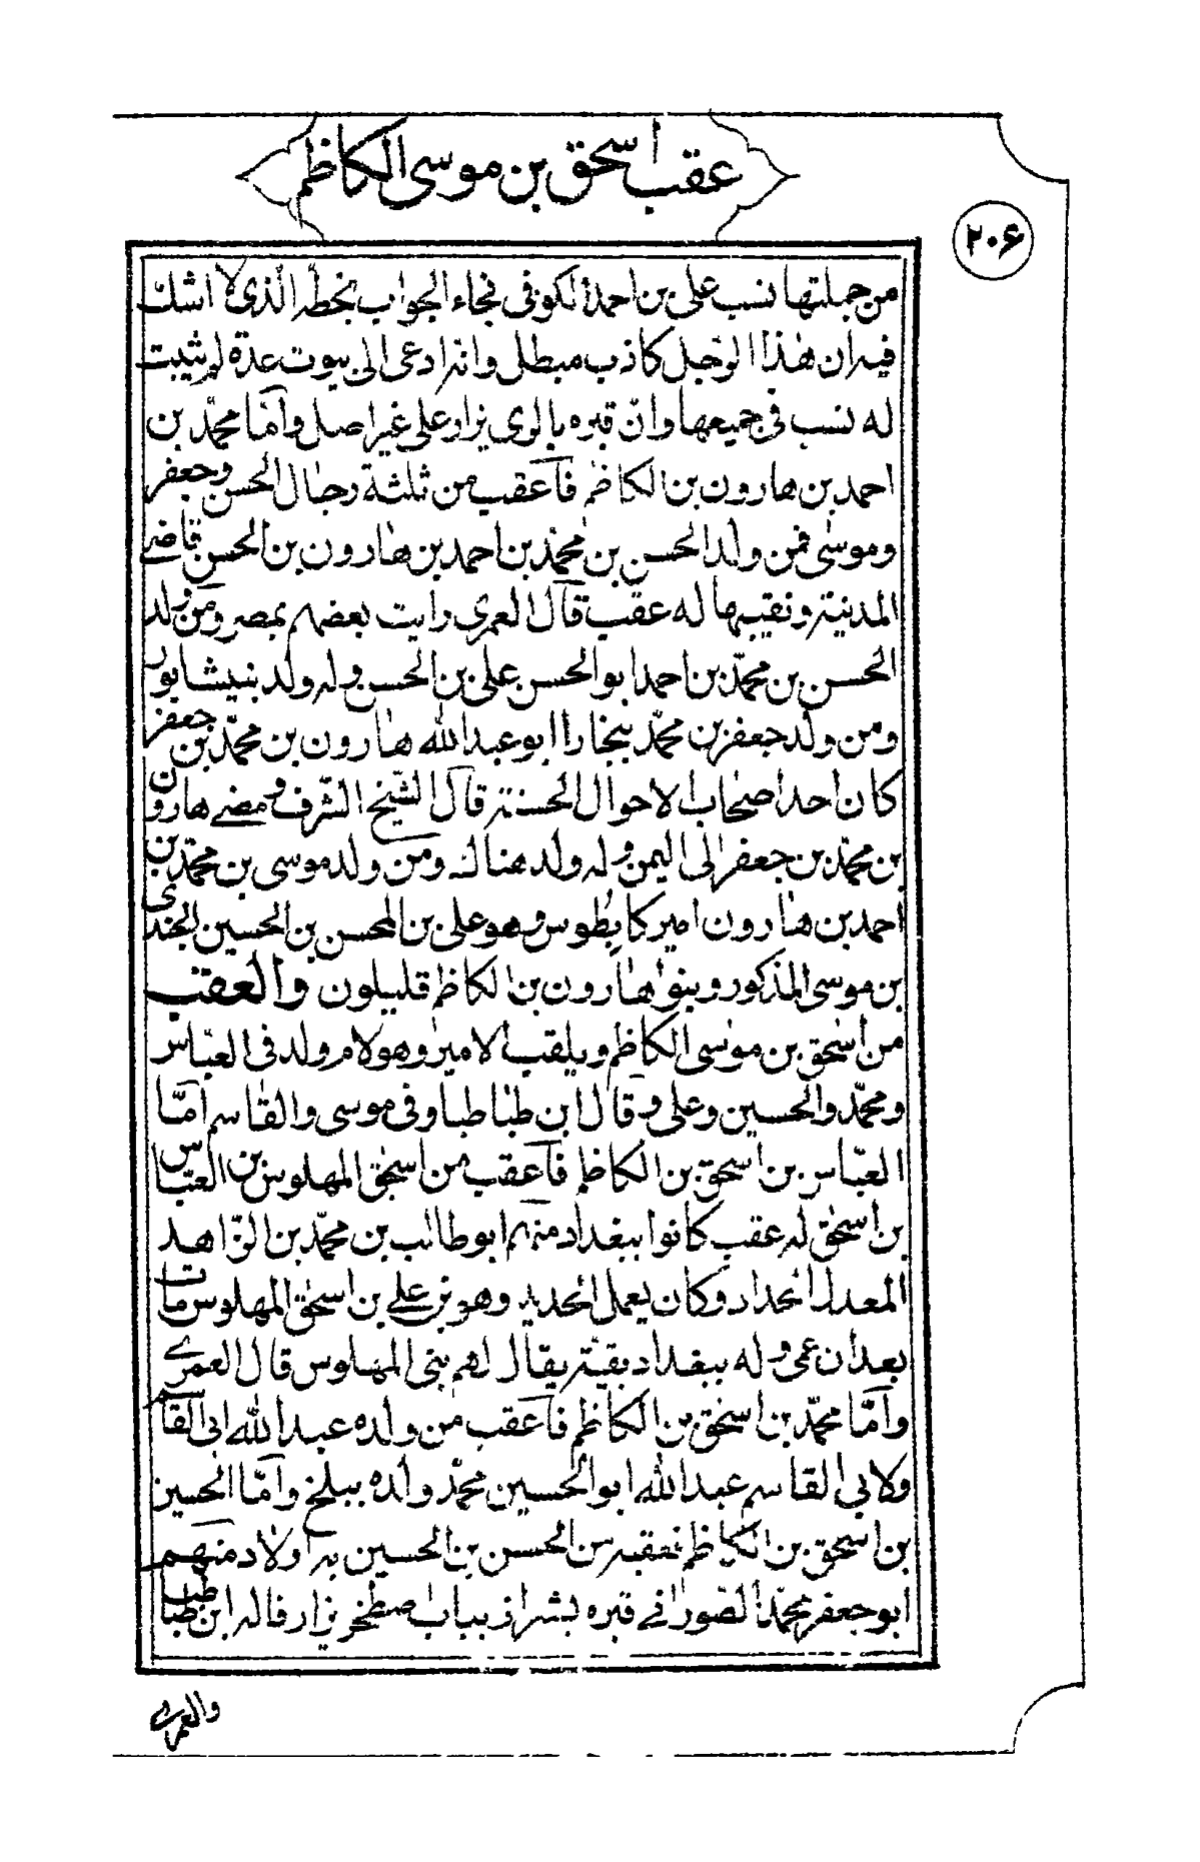 عقب اسحق بن موسى الكاظم
۲۰۶
من جملتها نسب على بن احمد الكوفى فجاء الجواب بخطه الّذى لا اشك
فيه ان هذا الرجل كاذب مبطل وانه ادعى الى بيوت عدة لم يثبت
له نسب فى جميعها وانّ قبره بالرى يزار على غير اصل وامّا محمّد بن
احمد بن هارون بن الكاظم فاعقب من ثلثة رجال الحسن وجعفر
وموسى فمن ولد الحسن بن محمّد بن احمد بن هارون بن الحسن قاضى
المدينة ونقيبها له عقب قال العمرى رايت بعضهم بمصر ومن ولد
الحسن بن محمّد بن احمد ابو الحسن على بن الحسن وله ولد بنيشابور
ومن ولد جعفر بن محمّد ببخارا ابو عبدالله هارون بن محمّد بن جعفر
كان احد اصحاب الاحوال الحسنة قال الشّيخ الشّرف ومضى هارون
بن محمّد بن جعفر الى اليمن وله ولد هناك ومن ولد موسى بن محمّد بن
احمد بن هارون اميركا بطوس وهو على بن المحسن بن الحسين الجندى
بن موسى المذكور وبنو هارون بن الكاظم قليلون والعقب
من اسحق بن موسى الكاظم ويلقب الامير وهو لام ولد فى العبّاس
ومحمّد والحسين وعلى وقال ابن طباطبا وفى موسى والقاسم امّا
العبّاس بن اسحق بن الكاظم فاعقب من اسحق المهلوس بن العبّاس
بن اسحق له عقب كانوا ببغداد منهم ابو طالب بن محمّد بن الزّاهد
المعدل الحداد وكان يعمل الحديد وهو بن على بن اسحق المهلوس مات
بعد ان عمى وله ببغداد بقيّة يقال لهم بنى المهلوس قال العمرى
وامّا محمّد بن اسحق بن الكاظم فاعقب من ولده عبدالله ابى القاسم
ولابى القاسم عبدالله ابو الحسين محمّد ولده ببلخ وامّا الحسين
بن اسحق بن الكاظم فعقبه من الحسن بن الحسين له اولاد منهم
ابو جعفر محمّد الصورانى قبره بشيراز بباب اصطخر يزار قاله ابن طباطبا
والعمرى